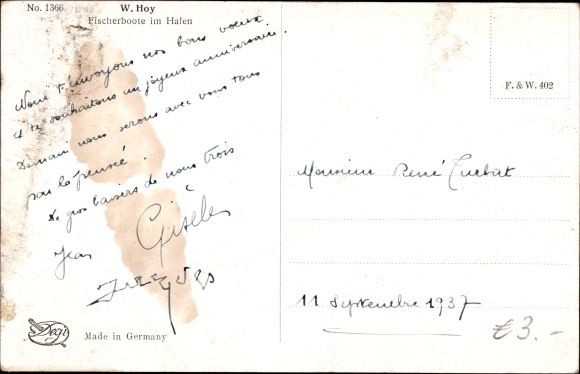 No. 1366
W. Hoy
Fischerboote im Hafen
Nous t'envoyons nos bons voeux
et te souhaitons un joyeux anniversaire.
Demain nous serons avec vous tous
par la pensée.
De gros baisers de nous trois
Jean
Gisèle
F. & W. 402
Monsieur René
11 Septembre 1937
€3.-
Degi
Made in Germany